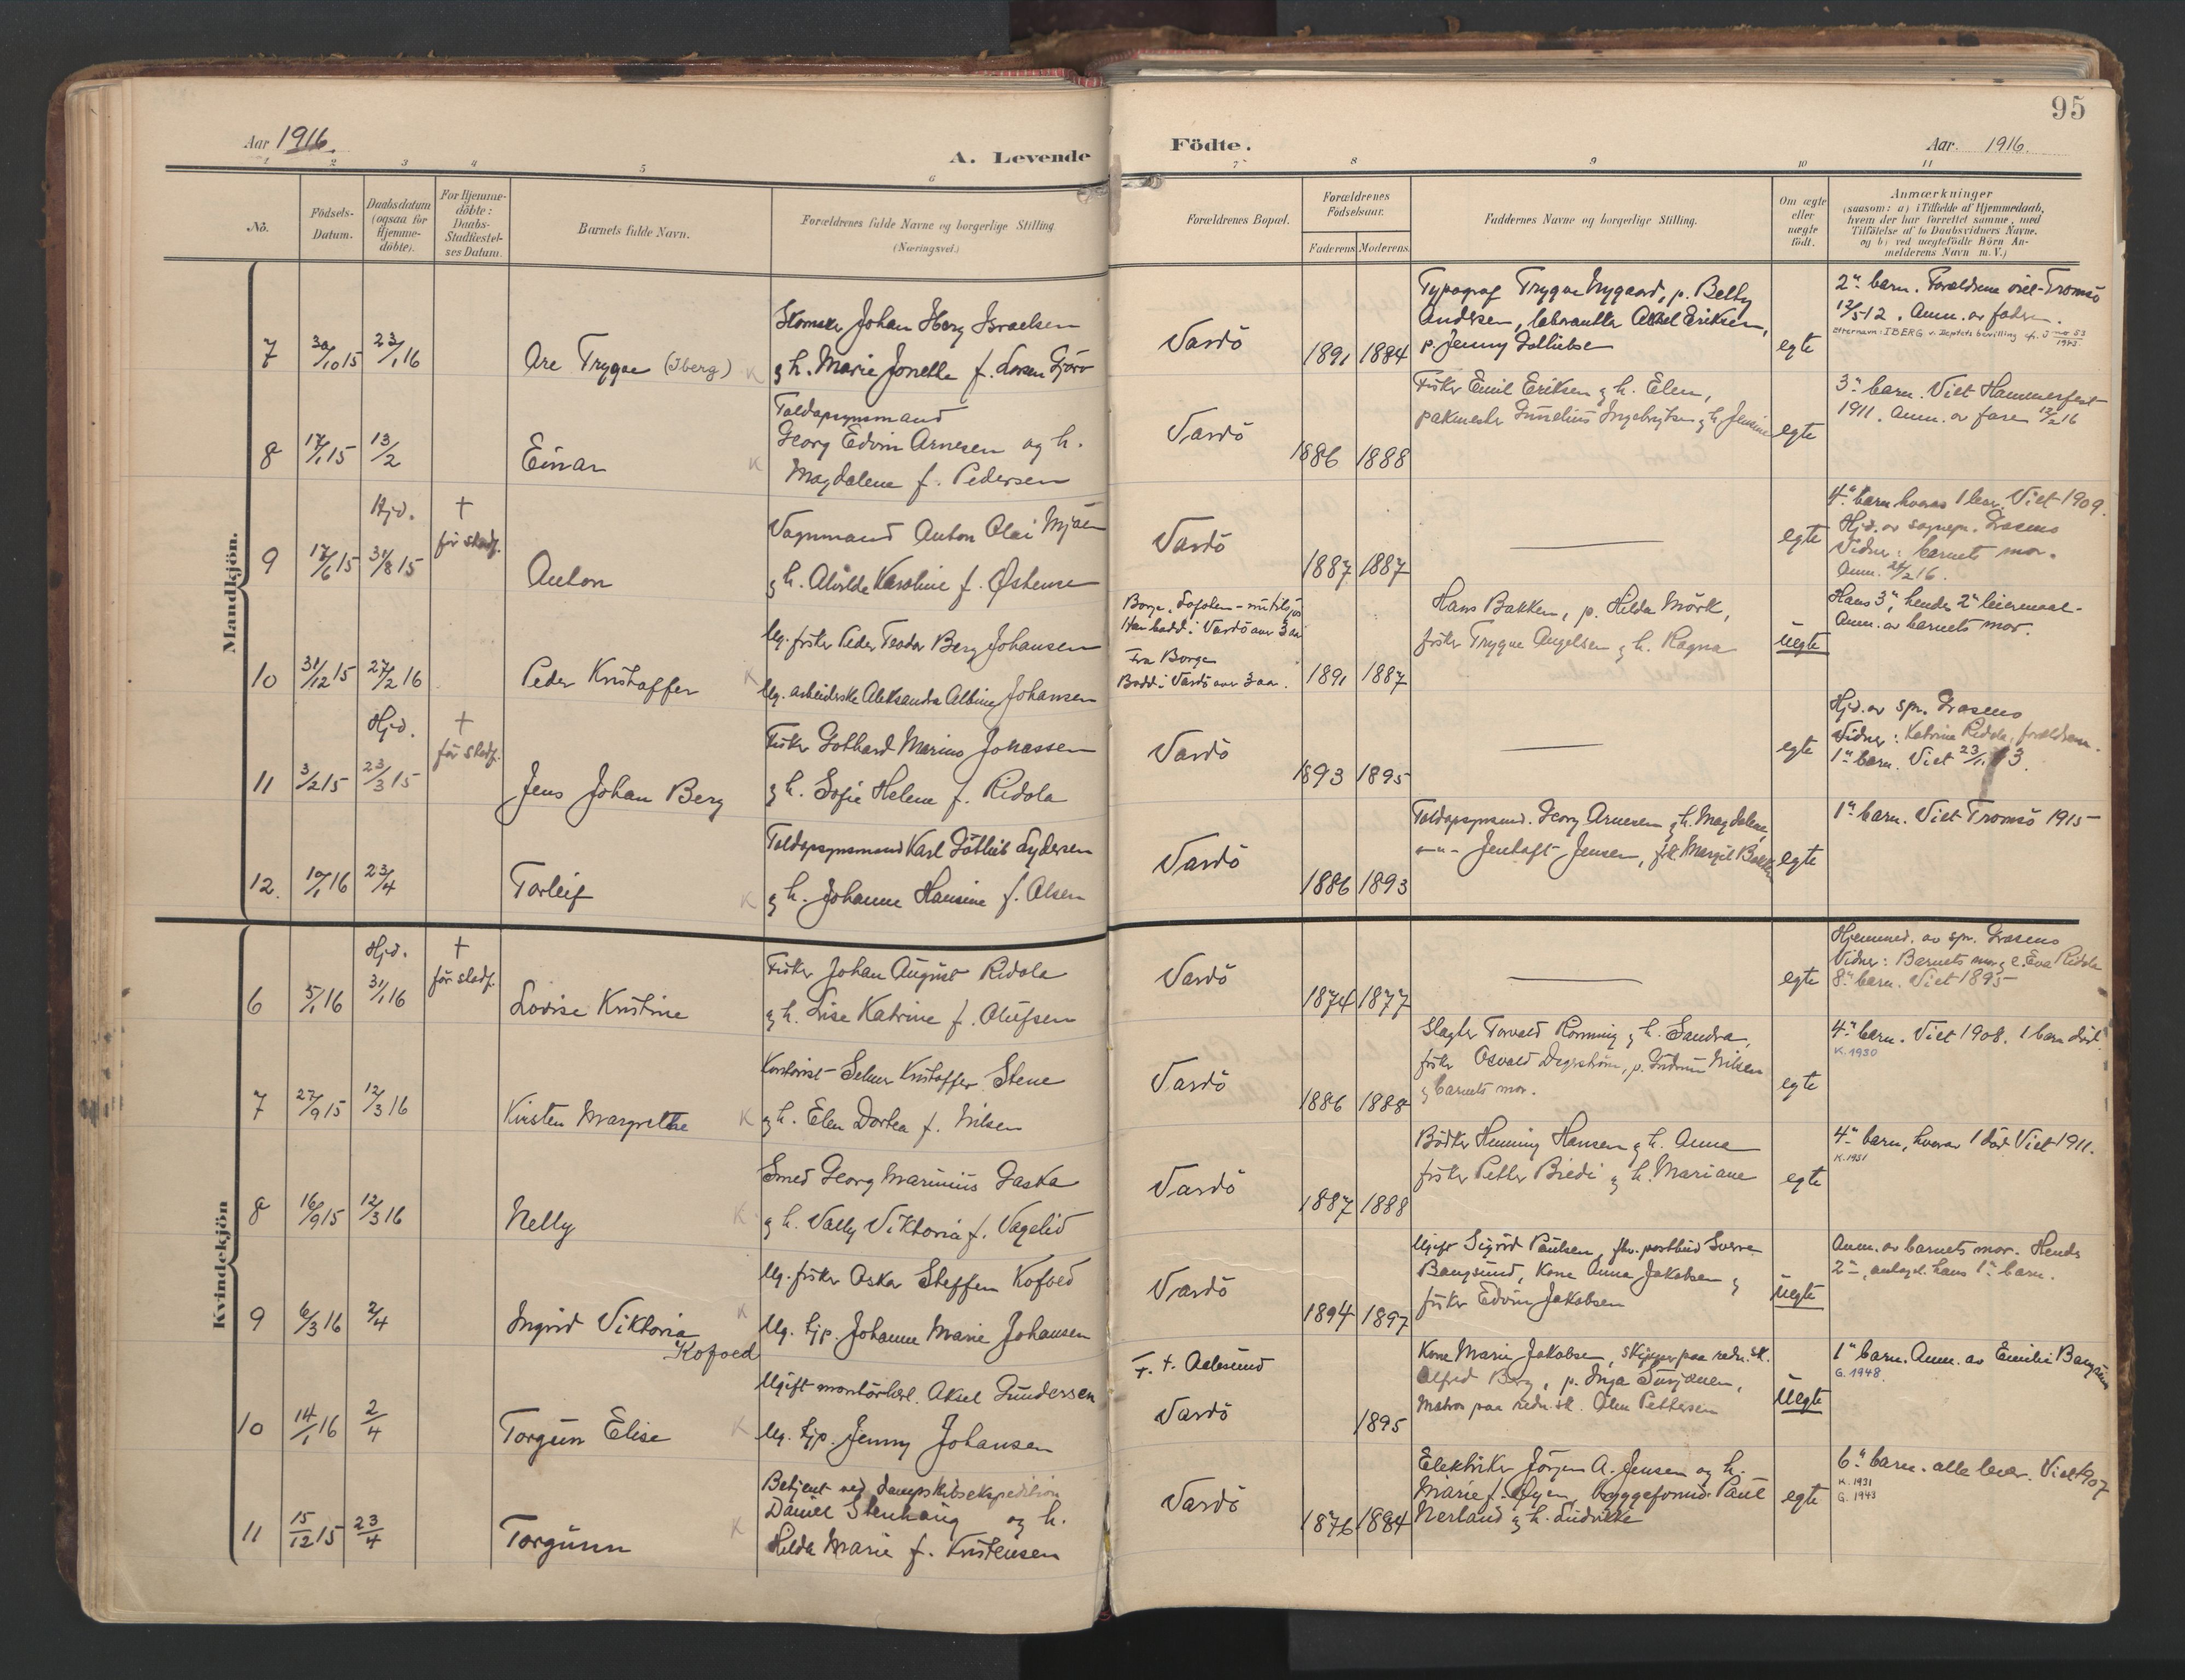 95
Aar 1916.
A. Levende
Födte.
Aar. 1916.
1 2 3 4 5 6 7 8 9 10 11
No.
Födsels-
Datum.
Daabsdatum
(ogsaa for
Hjemme-
döbte).
For Hjemme-
döbte:
Daabs-
Stadfæstel-
ses Datum.
Barnets fulde Navn.
Forældrenes fulde Navne og borgerlige Stilling
(Næringsvei.)
Forældrenes Bopæl.
Forældrenes
Födselsaar.
Faderens Moderens
Faddernes Navne og borgerlige Stilling.
Om ægte
eller
uægte
födt.
Anmærkninger
(saasom: a) i Tilfælde af Hjemmedaab,
hvem der har forrettet samme, med
Tilföielse af to Daabsvidners Navne,
og b) ved uægtefödte Börn An-
melderens Navn m.V.)
Mandkjön.
7 30/10 15 23/1 16
Are Trygve (Iberg) K
Skomaker Johan Iberg Israelsen
og h. Marie Jonette f. Larsen
Vardö
1891 1884
Typograf Trygve Nygaard, p. Betty
Andersen, Aksel Eriksen,
p. Jenny
egte
2" barn. Foreldrene viet Tromsö
12/5 12. Anm. av faderen.
Etternavn: IBERG v. Deptets bevilling
8 17/1 15 13/2
Einar K
Toldopsynsmand
Georg Edvin Arnesen og h.
Magdalene f. Pedersen
Vardö
1886 1888
Fisker Emil Eriksen og h. Elen,
pakmester Ingebrigtsen og h. Jensine
egte
3" barn. Viet Hammerfest
1911. Anm. av faren 12/2 16
9 17/6 15 Hjd. 31/8 15 † för stadf.
Anton
Vognmand Anton Olai
og h. Alvilde Karoline f. Østensen
Vardö
1887 1887
egte
4" barn, hvorav 1 lever. Viet 1909.
Hjd. av sognepr.
Vidner: barnets mor.
Anm. 16.
10 31/12 15 27/2 16
Peder Kristoffer K
Ug. fisker Peder Teodor Berg Johansen
Ug. arbeiderske Aleksandra Albine Johansen
Borge, Lofoten
Har bodd i Vardö over 3 aar
Fra Borge
Bodd i Vardö over 3 aar.
1891 1887
Hans Bakken, p. Hilda Mörk,
fisker Trygve Angelsen og h. Ragna
Uegte
Hans 3", hendes 2" leiermaal.
Anm. av barnets mor.
11 3/2 15 Hjd. 23/3 15 † för stadf.
Jens Johan Berg
Fisker Gothard Marius Jonassen
og h. Sofie Helene f. Ridola
Vardö
1893 1895
egte
Hjd. av spr.
Vidner: Katrine Ridola, forældrene.
1" barn. Viet 23/1 13.
12. 10/1 16 23/4
Torleif K
Toldopsynsmand Karl Gottlieb Lydersen
og h. Johanne Hansine f. Olsen
Vardö
1886 1893
Toldopsynsmd. Georg Arnesen og h. Magdalene,
—"— Jentoft Jensen, frk. Margit
egte
1" barn. Viet Tromsö 1915
Kvindekjön
6 5/1 16 Hjd. 31/1 16 † för stadf.
Lovise Kristine
Fisker Johan August Ridola
og h. Lise Katrine f. Olufsen
Vardö
1874 1877
egte
Hjemmed. av spr.
Vidner: Barnets mor og e. Eva Ridola
8" barn. Viet 1895
7 27/9 15 12/3 16
Kirsten Margrethe K
Kontorist Selmer Kristoffer Stene
og h. Elen Dortea f. Nilsen
Vardö
1886 1888
Slagter Torvald Rönning og h. Sandra,
fisker Osvald, p. Gudrun Nilsen
og barnets mor.
egte
4" barn. Viet 1908. 1 barn död.
K. 1930
8 16/9 15 12/3 16
Nelly K
Smed Georg Marinius Gaska
og h. Vally Viktoria f. Vagelid
Vardö
1887 1888
Bödker Henning Hansen og h. Anna
fisker Petter Biedi og h. Mariane
egte
4" barn, hvorav 1 död. Viet 1911.
K. 1931
9 6/3 16 2/4
Ingrid Viktoria
Kofoed K
Ug. fisker Oskar Steffen Kofoed
Ug. tjp. Johanne Marie Johansen
Vardö
1894 1897
Ugift Sigrid Paulsen, fhv. postbud Sverre
Bangsund, Kone Anna Jakobsen og
fisker Edvin Jakobsen
Uegte
Anm. av barnets mor. Hendes
2", antagel. hans 1" barn.
10 14/1 16 2/4
Torgun Elise K
Ugift montörherl. Aksel Gundersen
Ug. tjp. Jenny Johansen
F. t. Aalesund
Vardö
1895
Kone Marie Jakobsen, skipper paa redn.sk.
Alfred Berg, p. Inga
Matros paa redn.sk. Olen Pettersen
Uegte
1" barn. Anm. av Emilie Bangsund
G. 1948.
11 15/12 15 23/4
Torgunn K
Betjent ved dampskibsekspedition
Daniel Stenhaug og h.
Hilda Marie f. Kristensen
Vardö
1876 1884
Elektriker Jörgen A. Jensen og h.
Marie f. Øyen, byggeformd. Paul
Nerland og h. Ludvikke
egte
6" barn. alle lever. Viet 1907
K. 1931
G. 1943